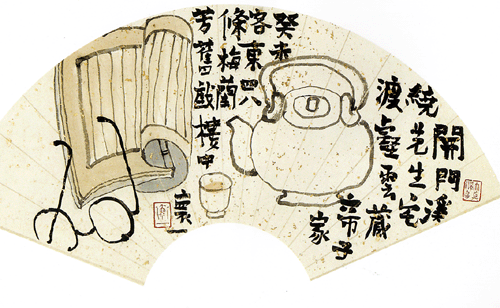 開門溪
繞先生宅
渡壑雲藏
帝子
家
癸未
客東四八
條梅蘭
芳舊戲樓中